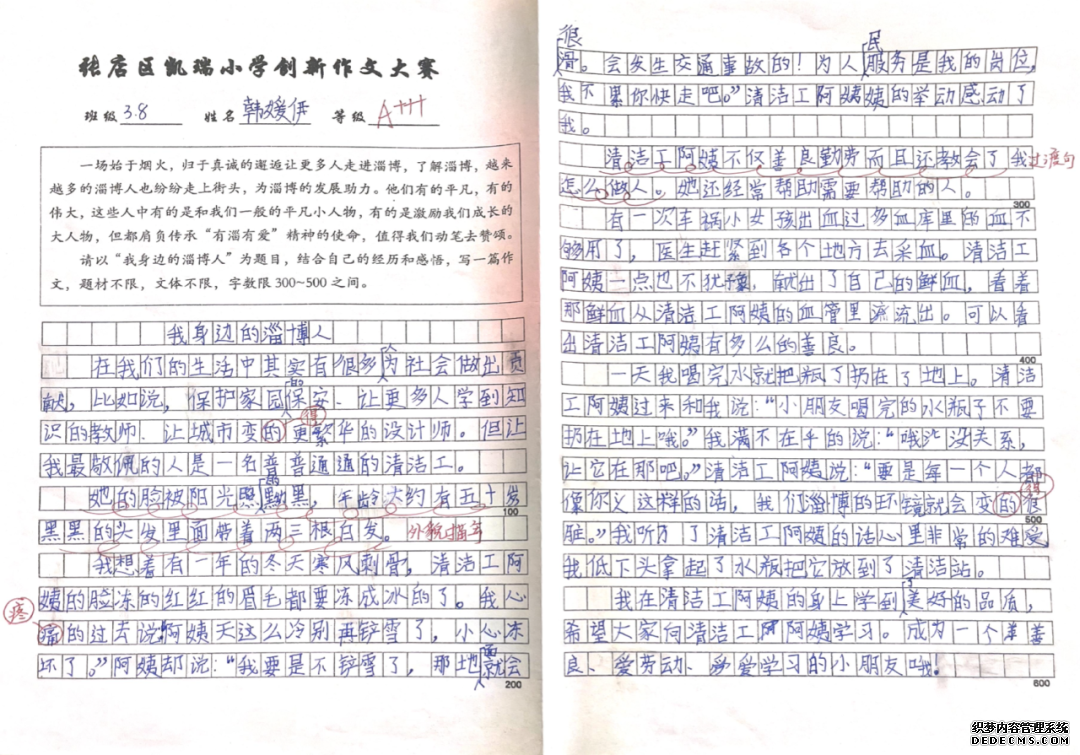 张店区凯瑞小学创新作文大赛
班级 3.8 姓名 韩媛伊 等级 A+++
一场始于烟火，归于真诚的邂逅让更多人走进淄博，了解淄博，越来
越多的淄博人也纷纷走上街头，为淄博的发展助力。他们有的平凡，有的
伟大，这些人中有的是和我们一般的平凡小人物，有的是激励我们成长的
大人物，但都肩负传承“有淄有爱”精神的使命，值得我们动笔去赞颂。
请以“我身边的淄博人”为题目，结合自己的经历和感悟，写一篇作
文，题材不限，文体不限，字数限 300~500 之间。
我身边的淄博人
在我们的生活中其实有很多人为社会做出贡
献，比如说，保护家园的保安、让更多人学到知
识的教师、让城市变的得更繁华的设计师。但让
我最敬佩的人是一名普普通通的清洁工。
她的脸被阳光照的黝黑，年龄大约有五十岁
100
黑黑的头发里面带着两三根白发。外貌描写
我想着有一年的冬天寒风刺骨，清洁工阿
姨的脸冻的红红的眉毛都要冻成冰的了。我心
疼的过去说：“阿姨天这么冷别再铲雪了，小心冻
坏了。”阿姨却说：“我要是不铲雪了，那地面就会
200
很
滑。会发生交通事故的！为人民服务是我的岗位，
我不累你快走吧。”清洁工阿姨的举动感动了
我。
清洁工阿姨不仅善良勤劳而且还教会了我 过渡句
怎么做人。她还经常帮助需要帮助的人。
300
有一次车祸小女孩出血过多血库里的血不
够用了，医生赶紧到各个地方去采血。清洁工
阿姨一点也不犹豫，献出了自己的鲜血，看着
那鲜血从清洁工阿姨的血管里流出。可以看
出清洁工阿姨有多么的善良。
400
一天我喝完水就把瓶子扔在了地上。清洁
工阿姨过来和我说：“小朋友喝完的水瓶子不要
扔在地上哦。”我满不在乎的说：“哦没关系，
让它在那吧。”清洁工阿姨说：“要是每一个人都
像你这样的话，我们淄博的环镜就会变的得很
500
脏。”我听了清洁工阿姨的话心里非常的难受
我低下头拿起了水瓶把它放到了清洁站。
我在清洁工阿姨的身上学到了美好的品质，
希望大家向清洁工阿姨学习。成为一个善
良、爱劳动、爱学习的小朋友哦！
600
织梦内容管理系统
DEDECMS.COM